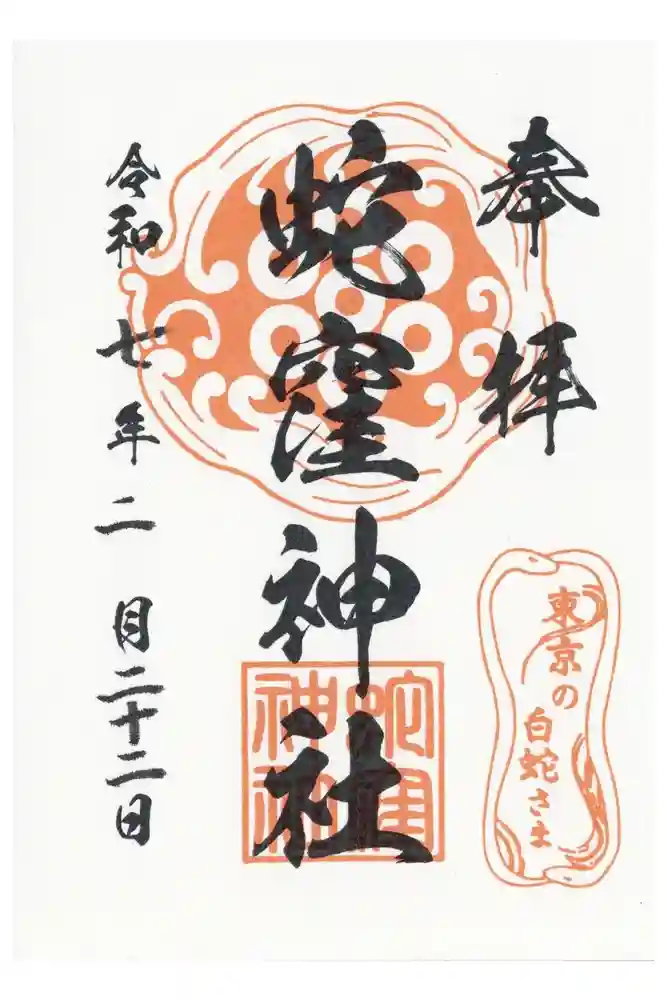 奉拝
東京の
白蛇さま
蛇窪神社
蛇窪
神社
令和七年二月二十二日